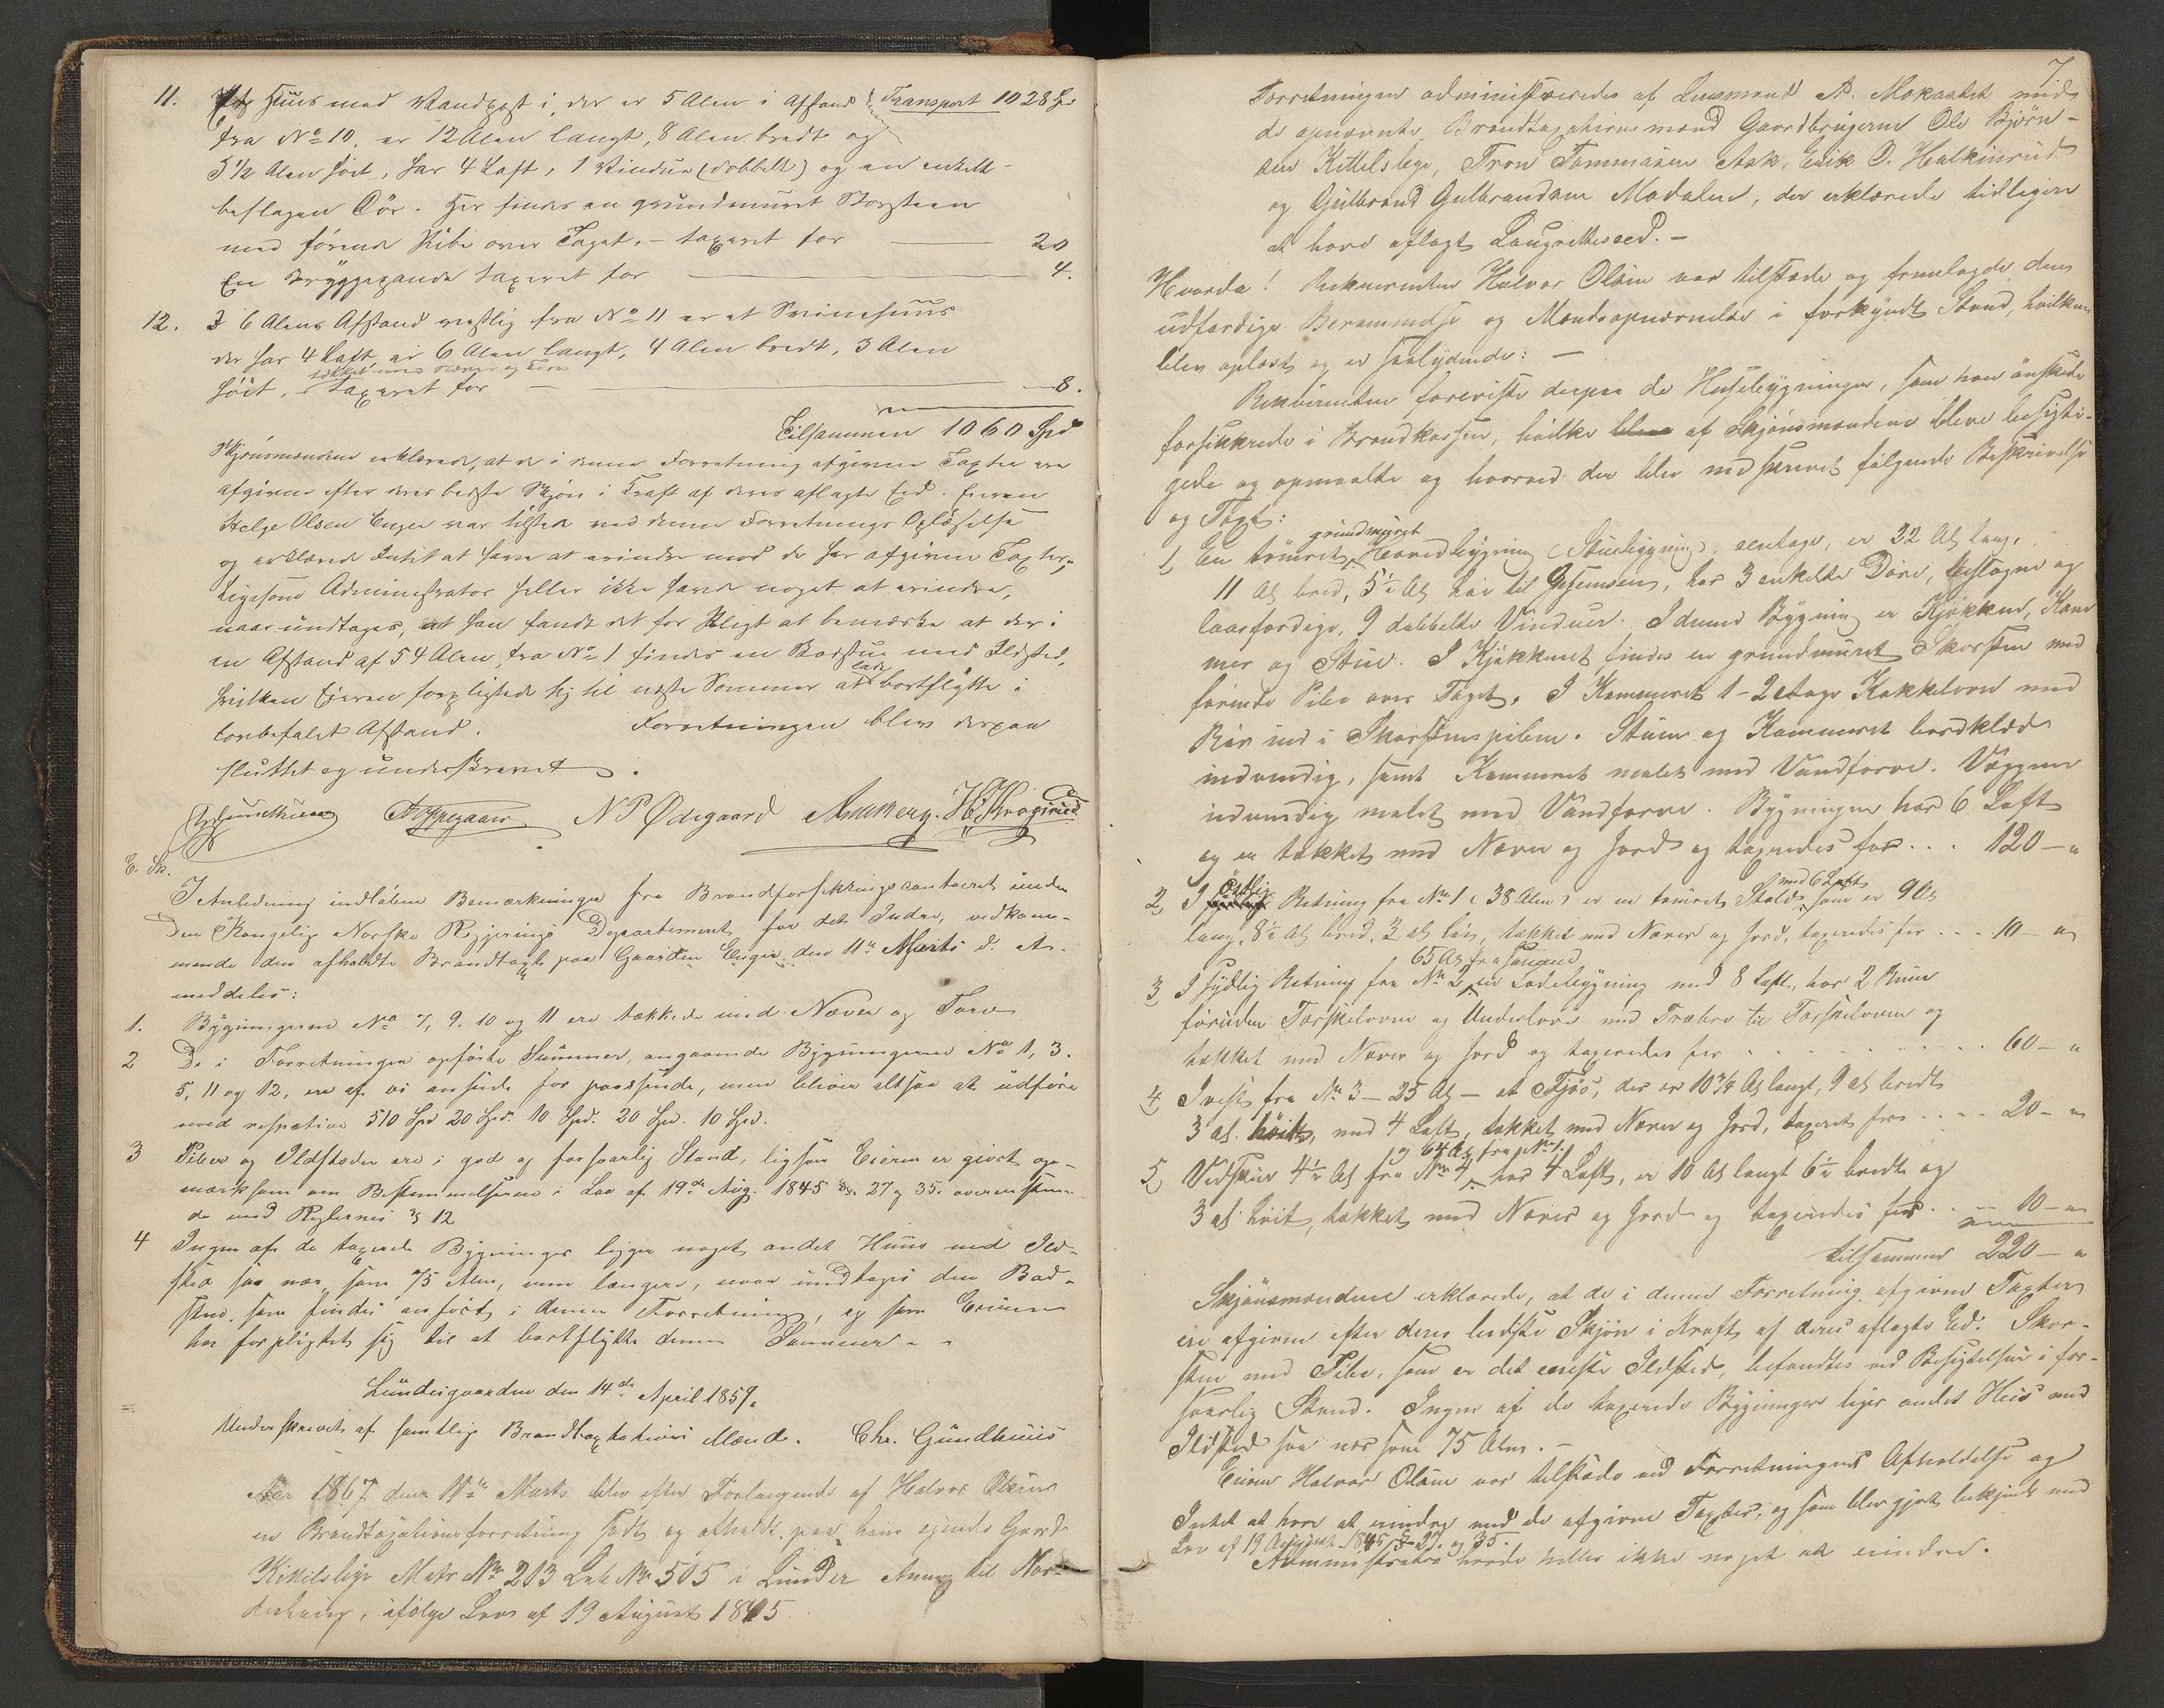 11. Et Huus med Vandpost i, der er 5 Alen i Afstand Transport 1028 Spd
fra No 10, er 12 Alen langt, 8 Alen bredt og
5 1/2 Alen høit, har 4 Laft, 1 Vindue (dobbelt) og en enkelt
beslagen Dör. Her findes en grundmuret Skorsteen
med førende Pibe over Taget, - taxeret for 20
En Bryggepande taxeret for 4.
12. I 6 Alens Afstand vestlig fra No 11 er et Sviinehuus
der har 4 Laft, er 6 Alen langt, 4 Alen bredt, 3 Alen
tækket med Næver og Torv
høit, Taxeret for 8.
Tilsammen 1060 Spd
Skjönsmændene erklærede, at de i denne Forretning afgivne Taxter ere
afgivne efter deres bedste Skjön i Kraft af deres aflagte Eed. Eieren
Helge Olsen Enger var tilstede ved denne Forretnings Oplæselse
og erklærede Intet at have at erindre mod de her afgivne Taxter,
Ligesom Administrator heller ikke havde noget at erindre,
naar undtages, at han fandt det for Pligt at bemærke at der i
en Afstand af 54 Alen fra No 1 findes en Badstue med Ildsted,
hvilken Eieren forpligtede sig til næste Sommer at lade bortflytte i
lovbefalet Afstand. Forretningen blev derpaa
sluttet og underskrevet.
N P Ødegaard
E. Sk.
I Anledning indløbne Bemærkninger fra Brandforsikringscontoiret under
Den Kongelig Norske Regjerings Departement for det Indre, vedkom-
mende den afholdte Brandtaxt paa Gaarden Enger den 11te Marts d. A.
meddeles:
1. Bygningerne No 7, 9, 10 og 11 ere tækkede med Næver og Torv
2 De i Forretningen opførte Summer, angaaende Bygningerne No 1, 3.
5, 11 og 12, ere af os ansete for passende, men bliver altsaa at udføre
med respective 510 Spd 20 Spd. 10 Spd. 20 Spd. 10 Spd.
3 Piber og Ildsteder ere i god og forsvarlig Stand, ligesom Eieren er giort op-
mærksom om Bestemmelserne i Lov af 19de Aug. 1845 §§ 27 og 35. overensstemmen-
de med Reglernes § 12
4 Ingen af de taxerede Bygninger ligger noget andet Huus med Ild-
sted saa nær som 75 Alen, men længere, naar undtages den Bad-
stue, som findes anført i denne Forretning, og som Eieren
har forpligtet sig til at bortflytte denne Sommer -
Lundergaarden den 14de April 1859.
Underskrevet af samtlige Brandtaxtations Mænd. Chr. Gundhuus
Aar 1867 den 11te Marts blev efter Forlangende af Halvor Olsen
en Brandtaxtionsforretning sadt og afholdt paa hans eiende Gaard
Kittilsbye Matr No 213 Løb No 505 i Lunder Annex til Nor-
derhoug, ifølge Lov af 19 August 1845
7
Forretningen administreredes af Lensmand A. Mokastet med
de opnævnte Brandtaxtionsmænd Gaardbrugerne Ole Björn-
sen Kittelsbye, Tron Tommasen Ask, Erik O. Halkinrud
og Gulbrand Gulbrandsen Modalen, der erklærede tidligere
at have aflagt Laugrettesed. -
Hvorda! Rekvirenten Halvor Olsen var tilstede og fremlagde den
udfærdige Berammelse og Mændsopnævnelse i forkyndt Stand, hvilken
blev oplæst og er saalydende: -
Rekvirenten foreviste derpaa de Husebygninger, som han önskede
forsikkrede i Brandkassen, hvilke af Skjönsmændene bleve besigti-
gede og opmaalte og hvorved der blev nedskrevet følgende Beskrivelse
og Taxt:
1, En tömret grundmuret Hovedbygning (Stuebygning), eenetage, er 32 Al lang,
11 Al bred, 5 1/2 Al høi til Gesemsen, har 3 enkelte Döre, beslagne og
laasfærdige, 9 dobbelte Vinduer. I denne Bygning er Kjøkken, Kam
mer og Stue. I Kjøkkenet findes en grundmuret Skorsten med
førende Pibe over Taget. I Kammeret 1 - 2 etage Kakkelovn med
Rör ind i Skorstenspiben. Stuen og Kammeret bordklæd
indvendig, samt Kammeret malet med Vandfarve. Væggene
udvendig malet med Vandfarve. Bygningen har 6 Laft
og er tækket med Næver og Jord og taxeredes for . . . 120 - "
2, I Östlig Retning fra No 1 (38 Alen) er en tømret Stald med 6 Laft som er 9 Al
lang, 8 1/2 Al bred, 3 al høi, tækket med Næver og Jord, taxeredes for - - - 10 - "
3, I sydlig Retning fra No 2, 65 Al fra en Ladebygning med 8 Laft, har 2 Rum
foruden Tørskeloven og Underlove med Træbro til Tørskeloven og
tækket med Næver og Jord og taxeredes for . . . . . 60 - "
4, I vest fra No 3 - 25 Al - et Fjøs, der er 10 3/4 Al langt, 9 al bredt
3 al. höit, med 4 Laft, tækket med Næver og Jord, taxeret for . . . . 20 - "
5, Vedskur 4 1/2 Al fra No 4 og 64 Al fra No 1. har 4 Laft, er 10 Al langt 6 1/2 bredt og
3 al. höit, tækket med Næver og Jord og taxeredes for . . . 10 - "
tilsammen 220 - "
Skjönsmændene erklærede, at de i denne Forretning afgivne Taxter
ere afgivne efter deres bedste Skjön i Kraft af deres aflagte Ed. Skor-
sten med Pibe, som er det eneste Ildsted, befandtes ved Besigtelsen i for-
svarlig Stand. Ingen af de taxerede Bygninger ligger andet Hus med
Ildsted saa nær som 75 Alen. -
Eieren Halvor Olsen var tilstede ved Forretningens Afholdelse og
Intet at have at erindre mod de afgivne Taxter, og som blev gjort bekjendt med
Lov af 19 August 1845 § 27. og 35.
Administrator havde heller ikke noget at erindre.